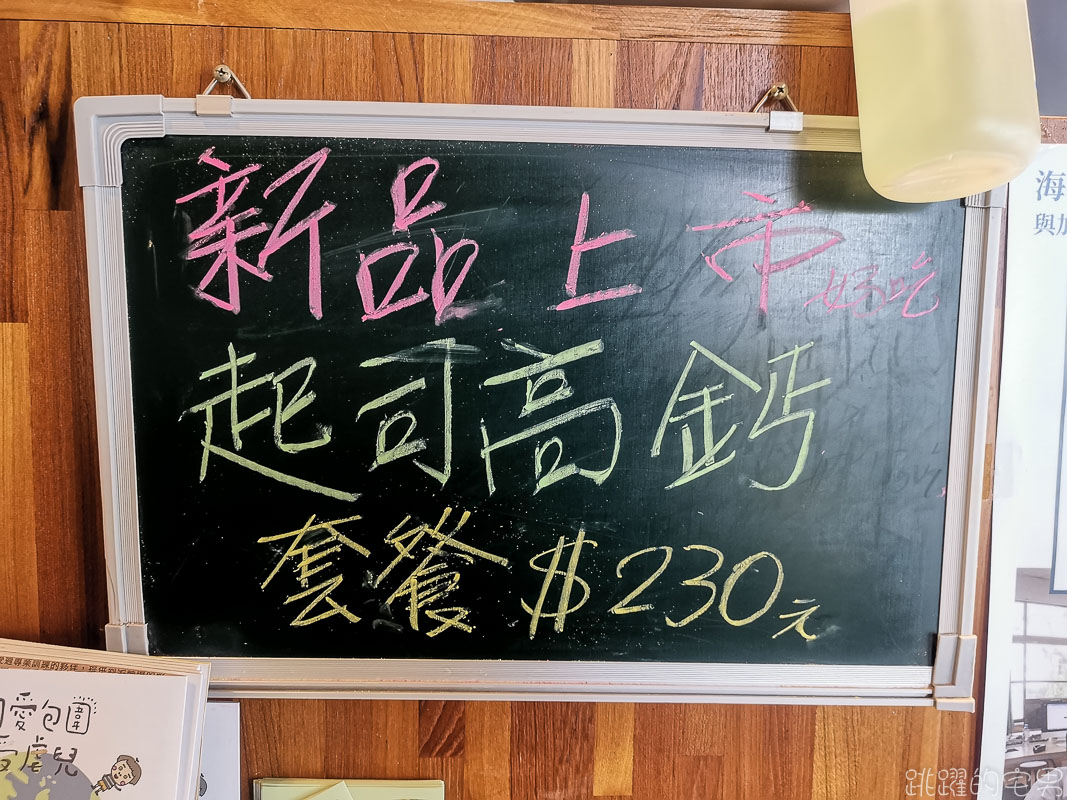 新品上市好吃
起司高鈣
套餐$230元
海
與加
愛包圍
受虐兒
跳躍的宅男